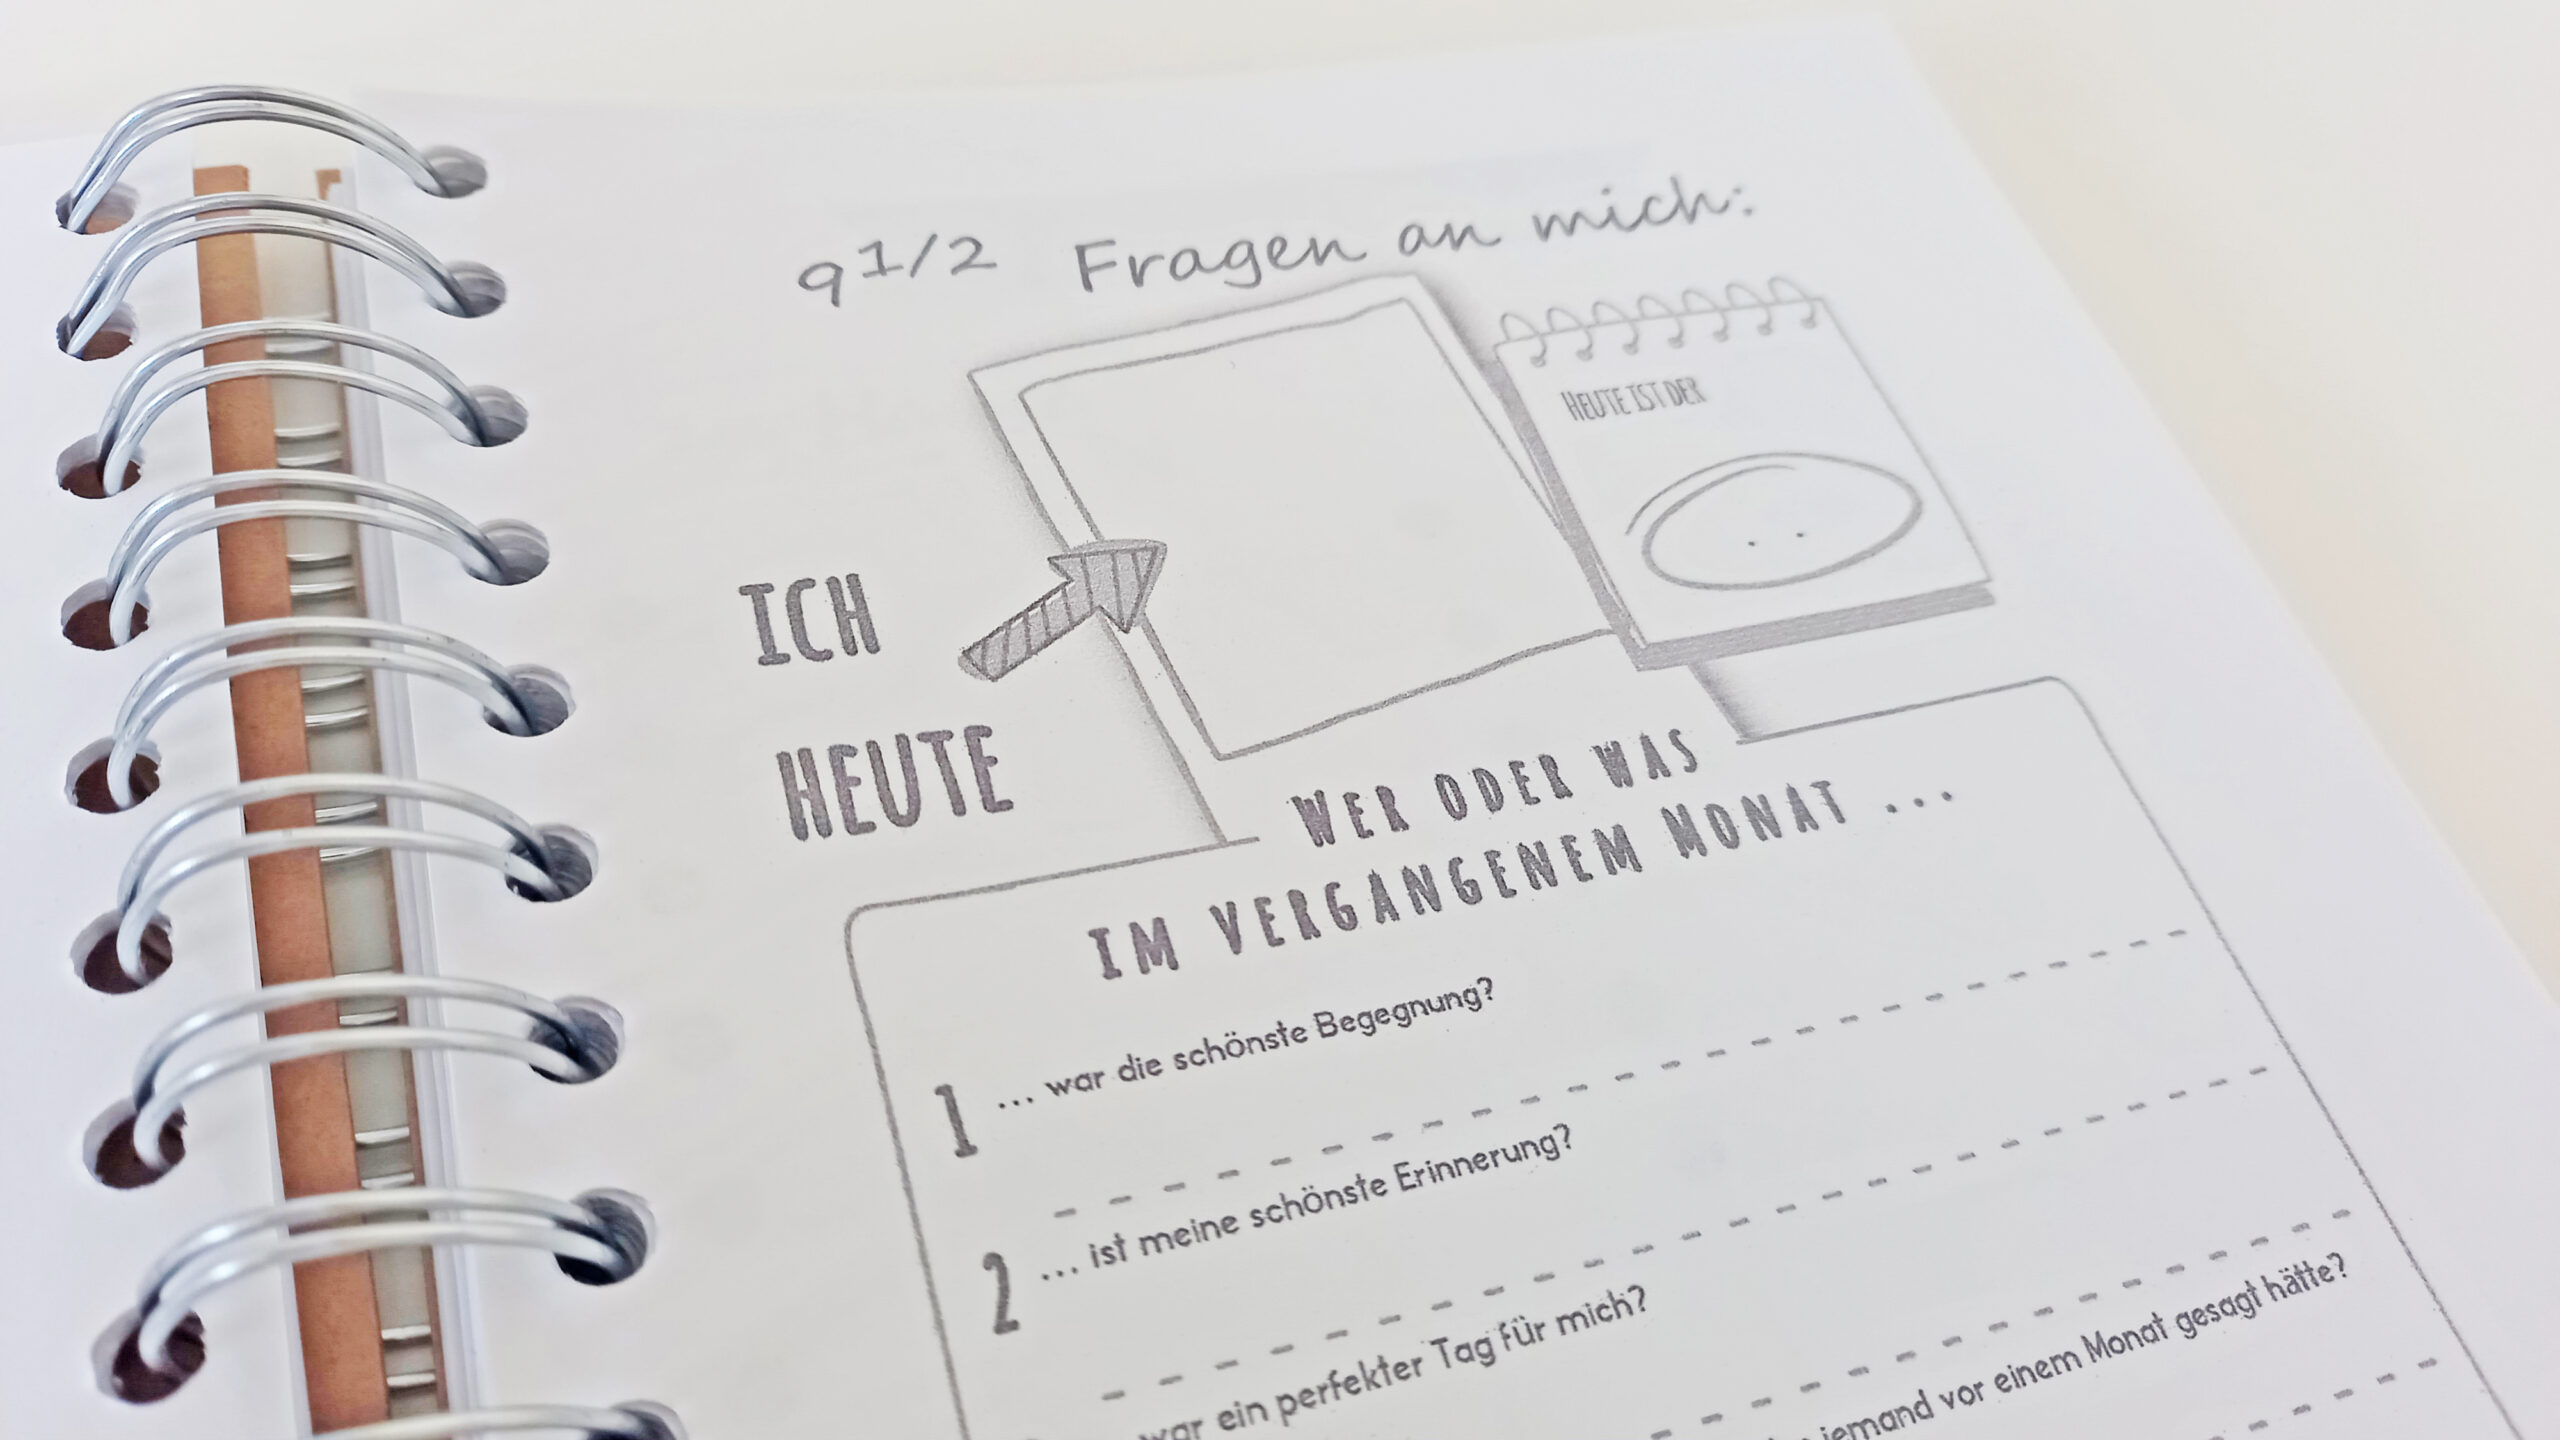 9 1/2 Fragen an mich:
HEUTE IST DER
. .
ICH
HEUTE
WER ODER WAS
IM VERGANGENEM MONAT ...
1 ... war die schönste Begegnung?
2 ... ist meine schönste Erinnerung?
war ein perfekter Tag für mich?
jemand vor einem Monat gesagt hätte?